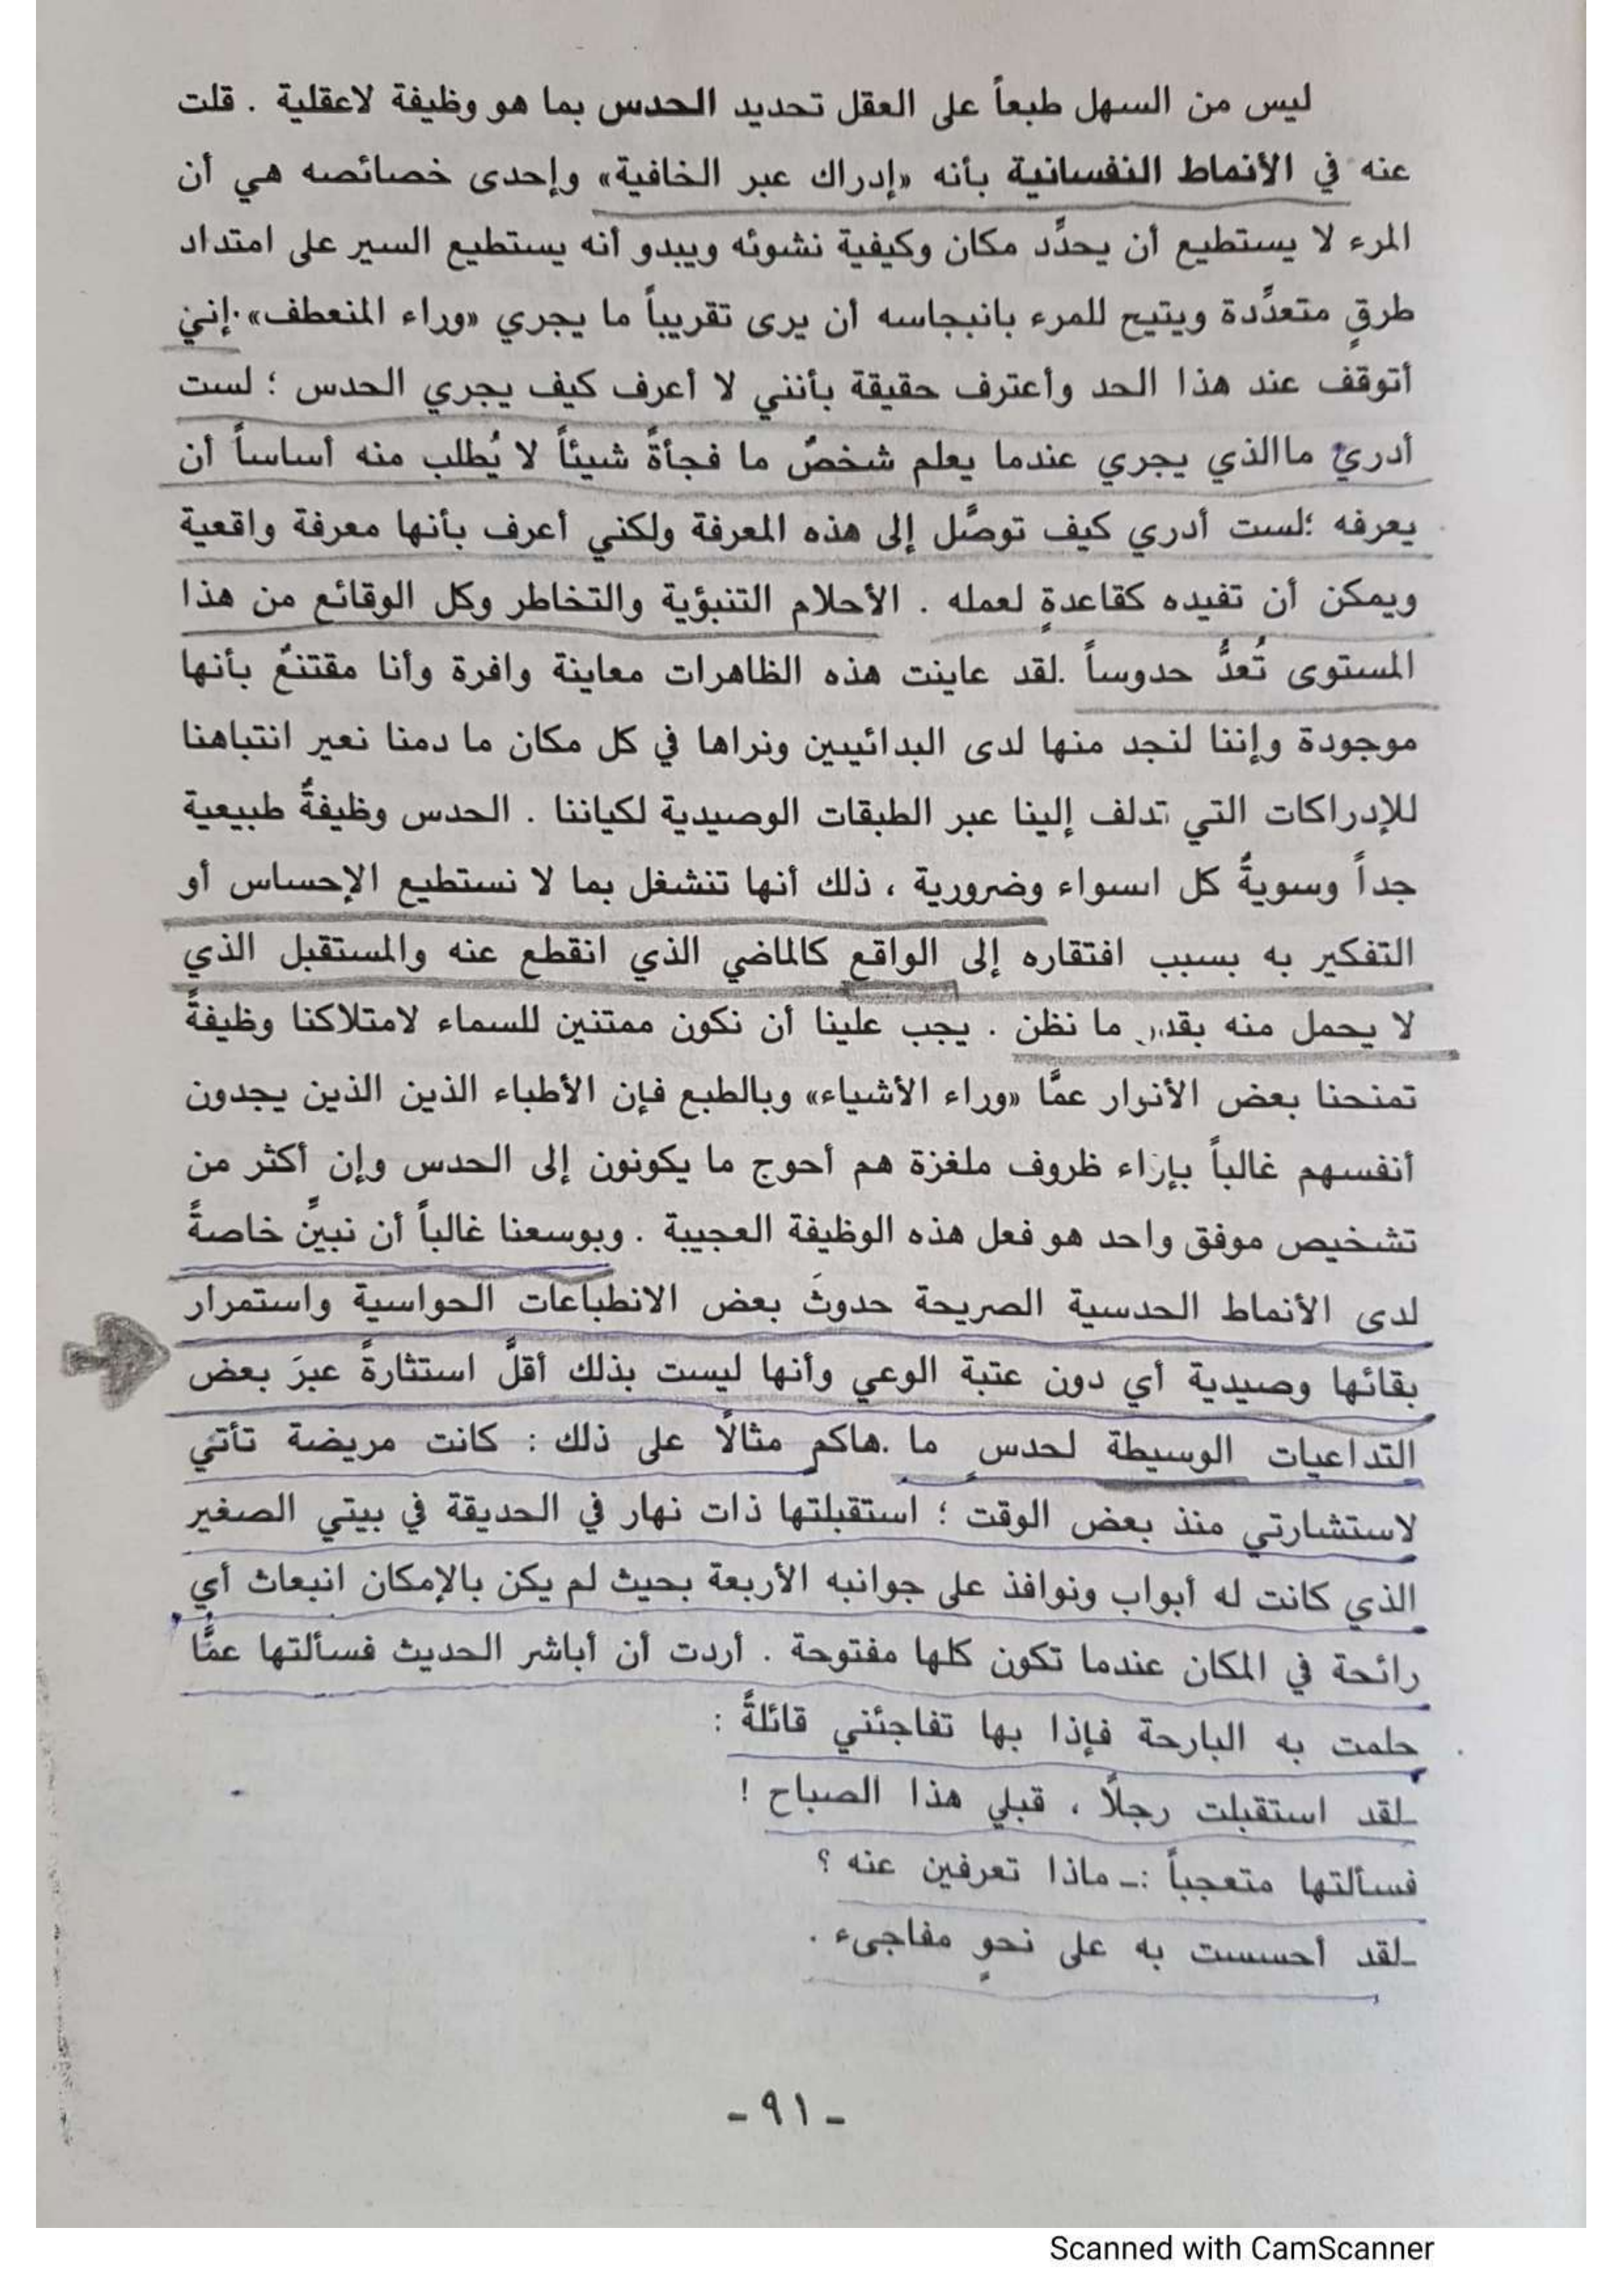 ليس من السهل طبعاً على العقل تحديد الحدس بما هو وظيفة لاعقلية . قلت
عنه في الأنماط النفسانية بأنه «إدراك عبر الخافية» وإحدى خصائصه هي أن
المرء لا يستطيع أن يحدِّد مكان وكيفية نشوئه ويبدو أنه يستطيع السير على امتداد
طرقٍ متعدِّدة ويتيح للمرء بانبجاسه أن يرى تقريباً ما يجري «وراء المنعطف» .إنني
أتوقف عند هذا الحد وأعترف حقيقة بأنني لا أعرف كيف يجري الحدس ؛ لست
أدري ماالذي يجري عندما يعلم شخصٌ ما فجأةً شيئاً لا يُطلب منه أساساً أن
يعرفه ؛لست أدري كيف توصَّل إلى هذه المعرفة ولكني أعرف بأنها معرفة واقعية
ويمكن أن تفيده كقاعدةٍ لعمله . الأحلام التنبؤية والتخاطر وكل الوقائع من هذا
المستوى تُعدُّ حدوساً .لقد عاينت هذه الظاهرات معاينة وافرة وأنا مقتنعٌ بأنها
موجودة وإننا لنجد منها لدى البدائيين ونراها في كل مكان ما دمنا نعير انتباهنا
للإدراكات التي تدلف إلينا عبر الطبقات الوصيدية لكياننا . الحدس وظيفةٌ طبيعية
جداً وسويةٌ كل اسواء وضرورية ، ذلك أنها تنشغل بما لا نستطيع الإحساس أو
التفكير به بسبب افتقاره إلى الواقع كالماضي الذي انقطع عنه والمستقبل الذي
لا يحمل منه بقدر ما نظن . يجب علينا أن نكون ممتنين للسماء لامتلاكنا وظيفةً
تمنحنا بعض الأنوار عمَّا «وراء الأشياء» وبالطبع فإن الأطباء الذين الذين يجدون
أنفسهم غالباً بإزاء ظروف ملغزة هم أحوج ما يكونون إلى الحدس وإن أكثر من
تشخيص موفق واحد هو فعل هذه الوظيفة العجيبة . وبوسعنا غالباً أن نبيِّن خاصةً
لدى الأنماط الحدسية الصريحة حدوثَ بعض الانطباعات الحواسية واستمرار
بقائها وصيدية أي دون عتبة الوعي وأنها ليست بذلك أقلَّ استثارةً عبرَ بعض
التداعيات الوسيطة لحدسٍ ما .هاكم مثالاً على ذلك : كانت مريضة تأتي
لاستشارتي منذ بعض الوقت ؛ استقبلتها ذات نهار في الحديقة في بيتي الصغير
الذي كانت له أبواب ونوافذ على جوانبه الأربعة بحيث لم يكن بالإمكان انبعاث أي
رائحة في المكان عندما تكون كلها مفتوحة . أردت أن أباشر الحديث فسألتها عمَّا
حلمت به البارحة فإذا بها تفاجئني قائلةً :
ـلقد استقبلت رجلاً ، قبلي هذا الصباح !
فسألتها متعجباً :ـ ماذا تعرفين عنه ؟
ـلقد أحسست به على نحوٍ مفاجىء .
- ٩١ -
Scanned with CamScanner